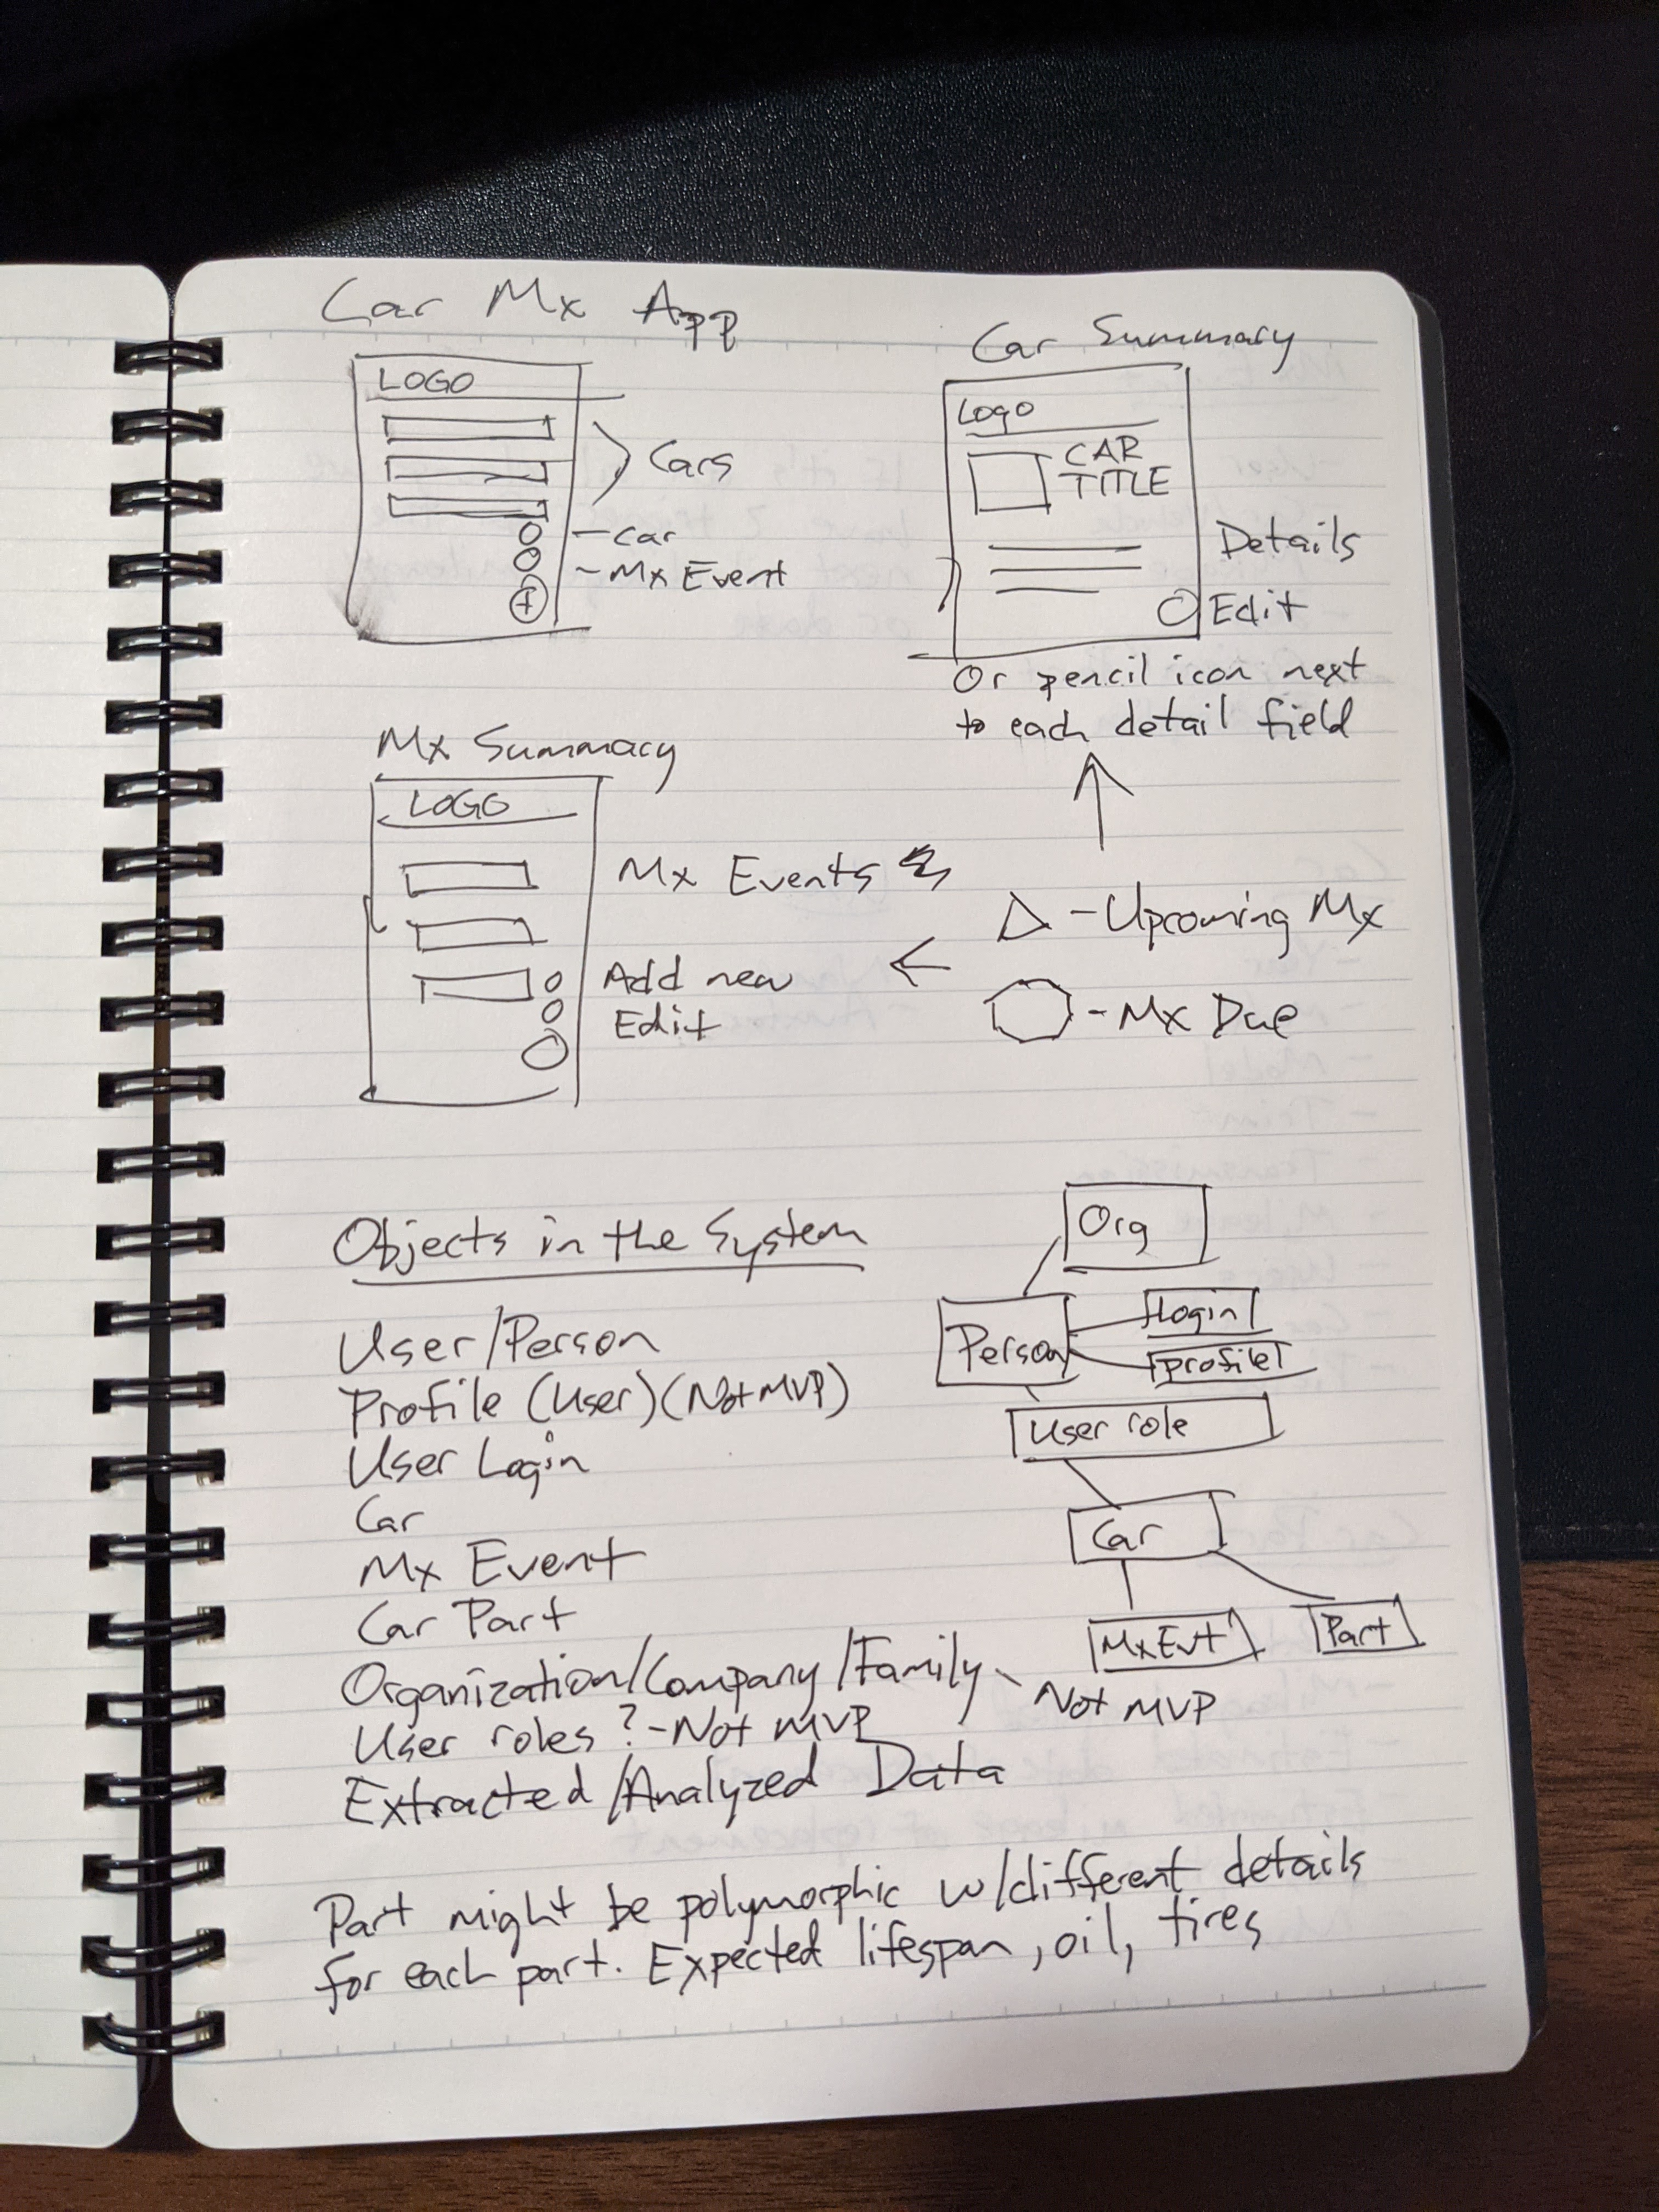 Car Mx App
LOGO
Cars
-car
-Mx Event
+
Car Summary
Logo
CAR
TITLE
Details
Edit
Or pencil icon next
to each detail field
Mx Summary
LOGO
Mx Events
Add new
Edit
-Upcoming Mx
-Mx Due
Objects in the System
User/Person
Profile (User)(Not MVP)
User Login
Car
Mx Event
Car Part
Organization/Company/Family - Not MVP
User roles? - Not MVP
Extracted/Analyzed Data
Org
Person
Login
profile
User role
Car
MxEvt
Part
Part might be polymorphic w/different details
for each part. Expected lifespan, oil, tires